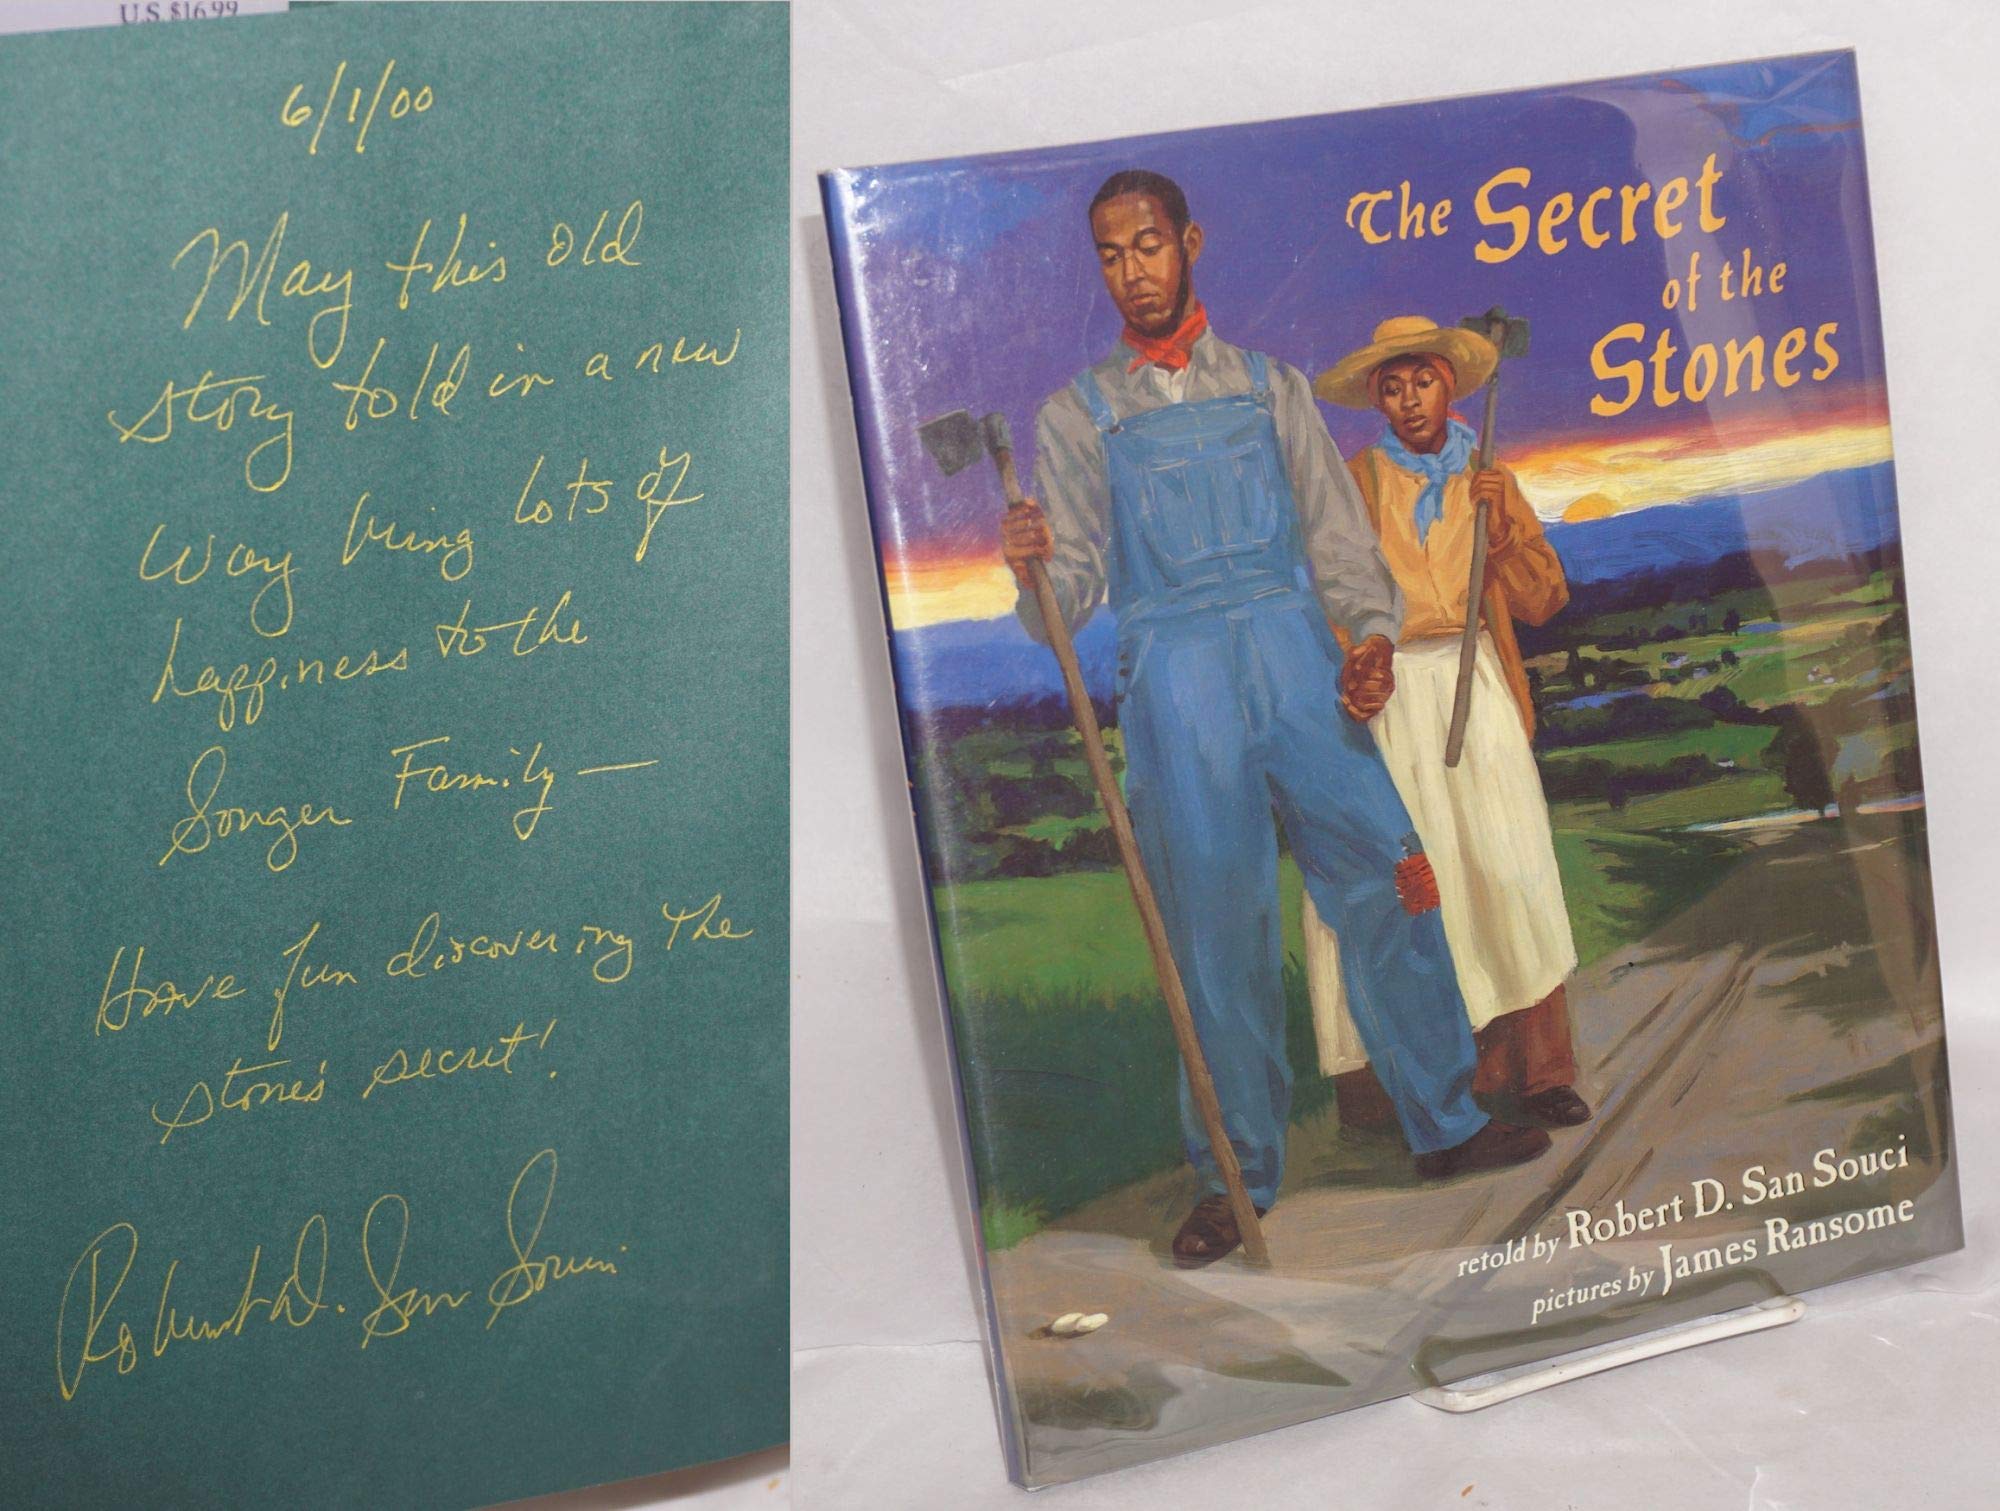 U.S. $16.99
6/1/00
May this old
story told in a new
way bring lots of
happiness to the
Songer Family —
Have fun discovering the
stone's secret!
Robert D. San Souci
The Secret
of the
Stones
retold by Robert D. San Souci
pictures by James Ransome